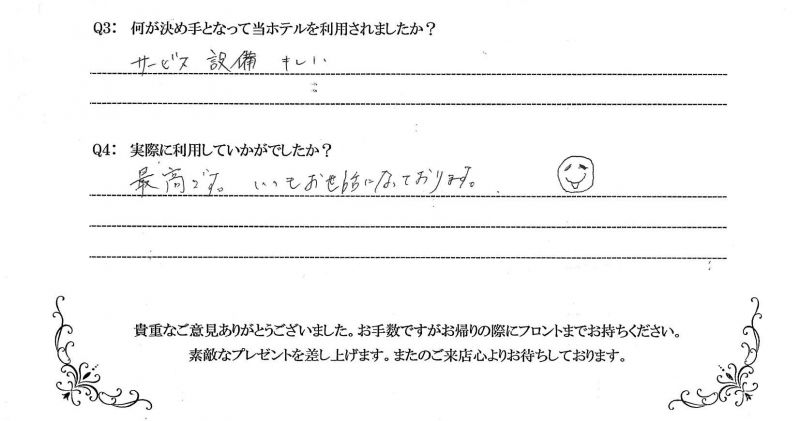 Q3： 何が決め手となって当ホテルを利用されましたか？
サービス 設備 キレイ
Q4： 実際に利用していかがでしたか？
最高です。いつもお世話になっております。
貴重なご意見ありがとうございました。お手数ですがお帰りの際にフロントまでお持ちください。
素敵なプレゼントを差し上げます。またのご来店心よりお待ちしております。